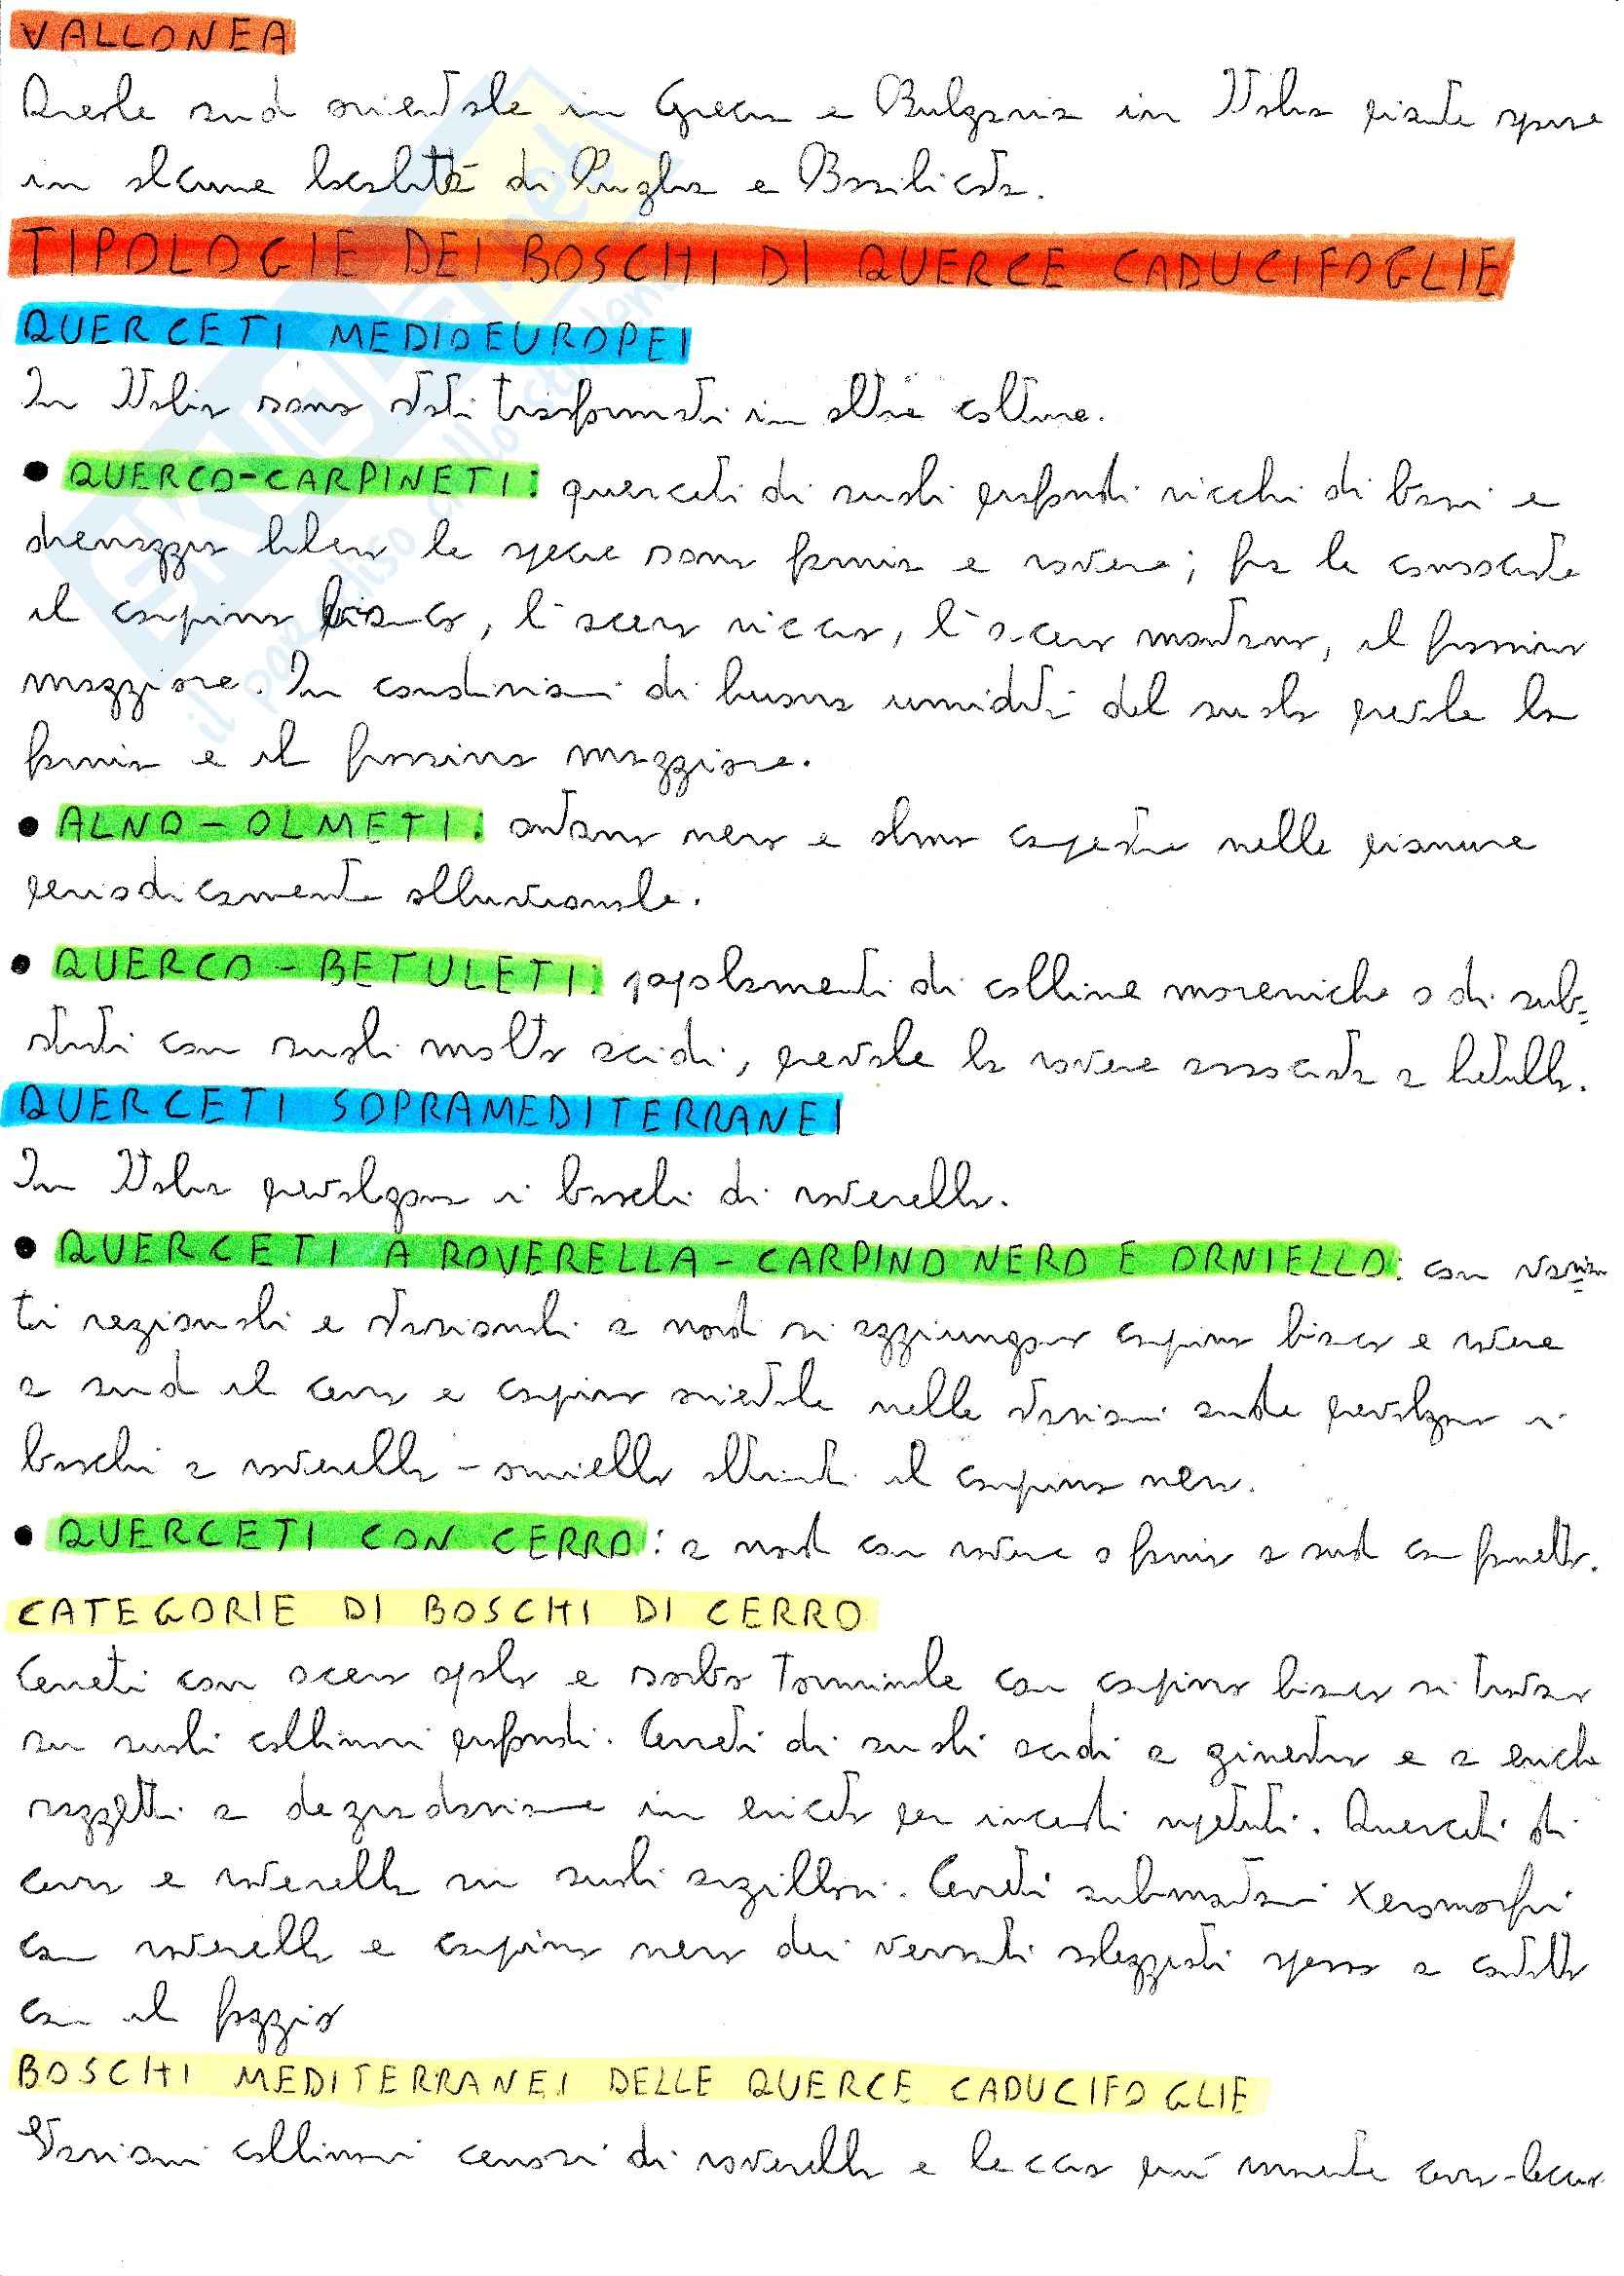 VALLONEA
Querce sud orientale in Grecia e Bulgaria in Italia piante sparse
in alcune località di Puglia e Basilicata.
TIPOLOGIE DEI BOSCHI DI QUERCE CADUCIFOGLIE
QUERCETI MEDIOEUROPEI
In Italia sono stati trasformati in altre colture.
• QUERCO-CARPINETI: querceti di suoli profondi ricchi di basi e
drenaggio libero le specie sono farnia e rovere; fra le consociate
il carpino bianco, l'acero riccio, l'acero montano, il frassino
maggiore. In condizioni di buona umidità del suolo prevale la
farnia e il frassino maggiore.
• ALNO-OLMETI: ontano nero e olmo campestre nelle pianure
periodicamente alluvionale.
• QUERCO-BETULETI: popolamenti di colline moreniche o di sub=
strati con suoli molto acidi, prevale la rovere associata a betulla.
QUERCETI SOPRAMEDITERRANEI
In Italia prevalgono i boschi di roverella.
• QUERCETI A ROVERELLA-CARPINO NERO E ORNIELLO: con varian=
ti regionali e stazionali a nord si aggiungono carpino bianco e rovere
a sud il cerro e carpino orientale nelle stazioni aride prevalgono i
boschi a roverella-orniello altrimenti il carpino nero.
• QUERCETI CON CERRO: a nord con rovere o farnia a sud con farnetto.
CATEGORIE DI BOSCHI DI CERRO
Cerreti con acero opalo e sorbo torminale con carpino bianco si trovano
su suoli collinari profondi. Cerreti di suoli acidi a ginestra e a eriche
soggetti a degradazione in ericeto per incendi ripetuti. Querceti di
cerro e roverella su suoli argillosi. Cerreti submontani xeromorfi
con roverella e carpino nero dei versanti soleggiati spesso a contatto
con il faggio
BOSCHI MEDITERRANEI DELLE QUERCE CADUCIFOGLIE
Stazioni collinari cenosi di roverella e leccio più cerro-leccio